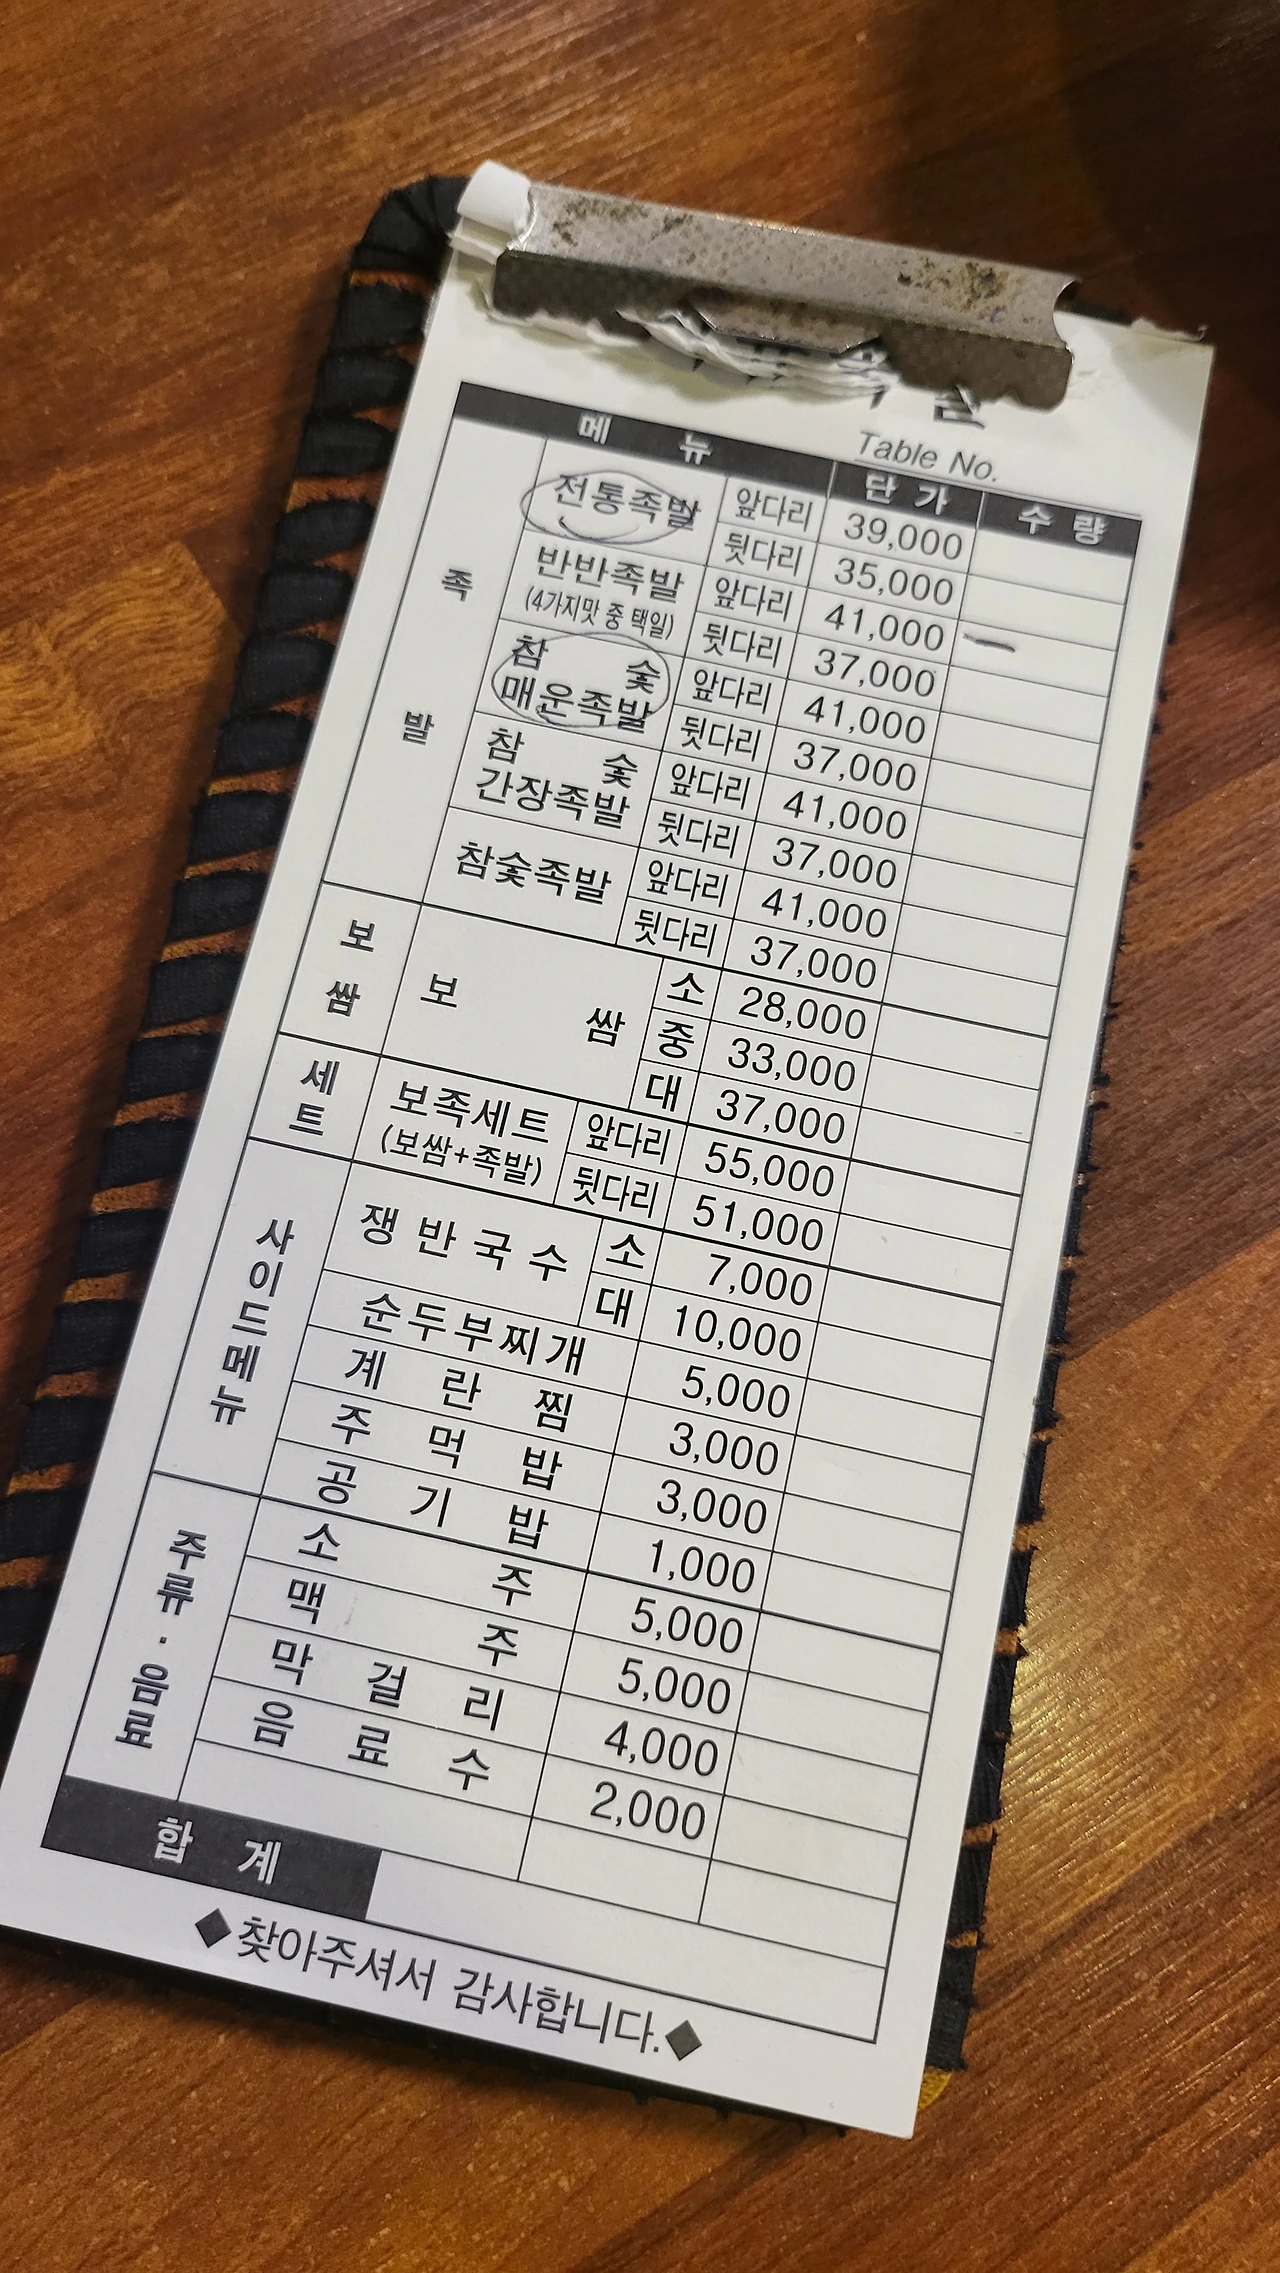 Table No.
메 뉴 단 가 수 량
족 발
전통족발 앞다리 39,000
뒷다리 35,000
반반족발 앞다리 41,000
(4가지맛 중 택일) 뒷다리 37,000
참 숯 앞다리 41,000
매운족발 뒷다리 37,000
참 숯 앞다리 41,000
간장족발 뒷다리 37,000
참숯족발 앞다리 41,000
뒷다리 37,000
보쌈
보 쌈 소 28,000
중 33,000
대 37,000
세트
보족세트 앞다리 55,000
(보쌈+족발) 뒷다리 51,000
사이드메뉴
쟁 반 국 수 소 7,000
대 10,000
순두부찌개 5,000
계 란 찜 3,000
주 먹 밥 3,000
공 기 밥 1,000
주류·음료
소 주 5,000
맥 주 5,000
막 걸 리 4,000
음 료 수 2,000
합 계
◆찾아주셔서 감사합니다.◆